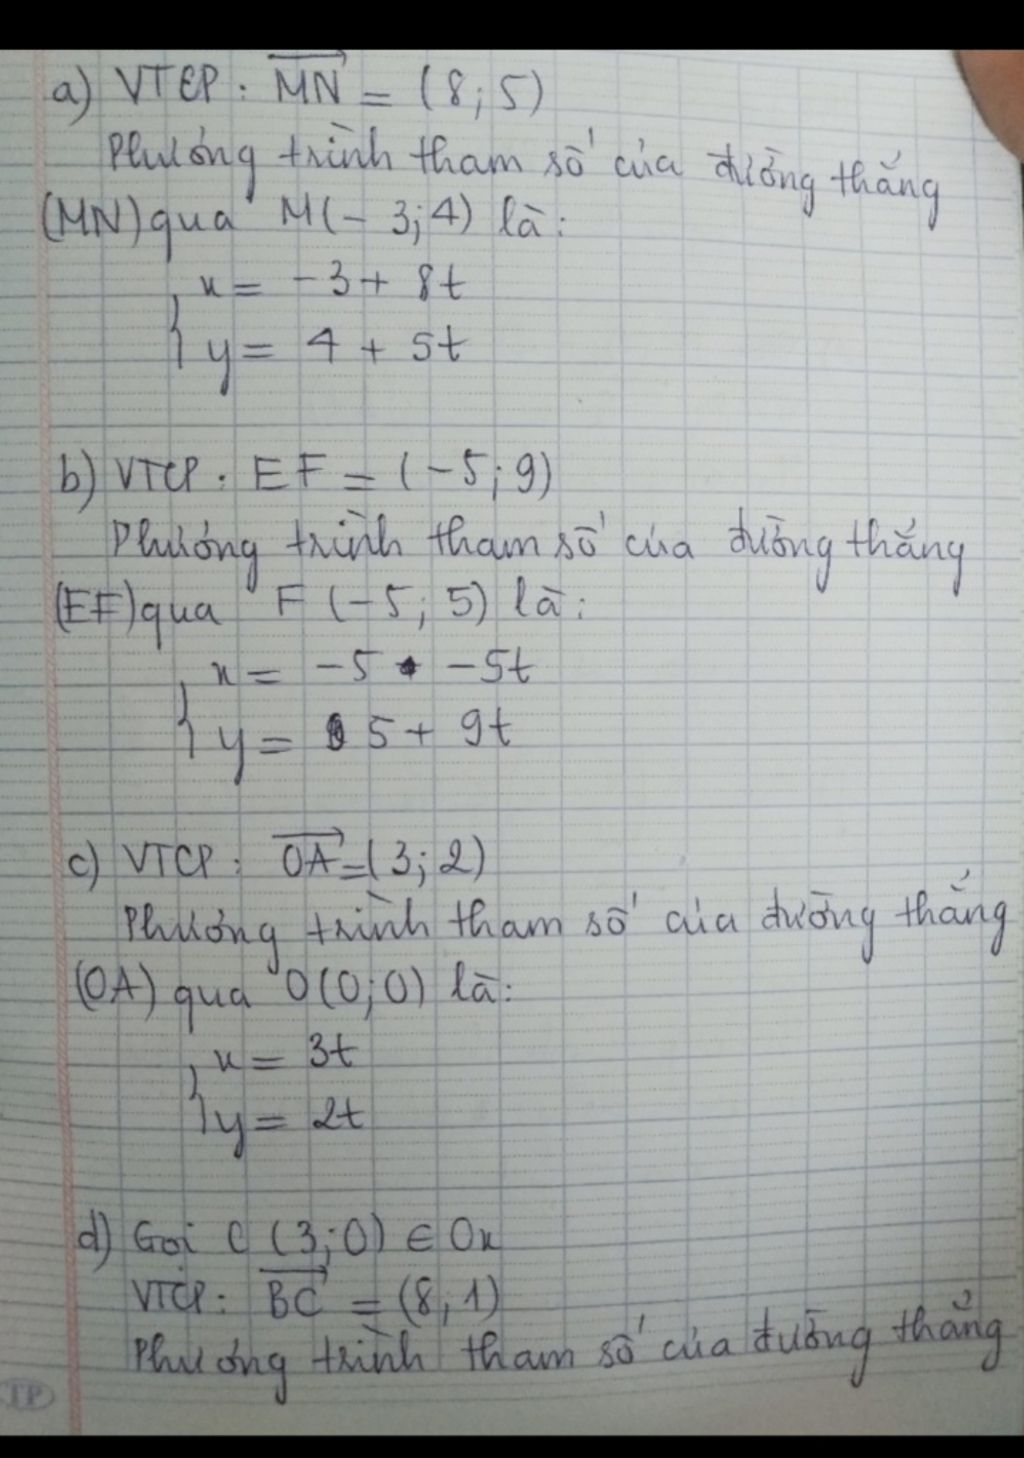 a) VTCP: MN = (8; 5)
Phương trình tham số của đường thẳng
(MN) qua M(-3; 4) là:
x = -3 + 8t
y = 4 + 5t
b) VTCP: EF = (-5; 9)
Phương trình tham số của đường thẳng
(EF) qua F (-5; 5) là:
x = -5 -5t
y = 5 + 9t
c) VTCP: OA = (3; 2)
Phương trình tham số của đường thẳng
(OA) qua O(0; 0) là:
x = 3t
y = 2t
d) Gọi C (3; 0) ∈ Ox
VTCP: BC = (8; 1)
Phương trình tham số của đường thẳng
TP